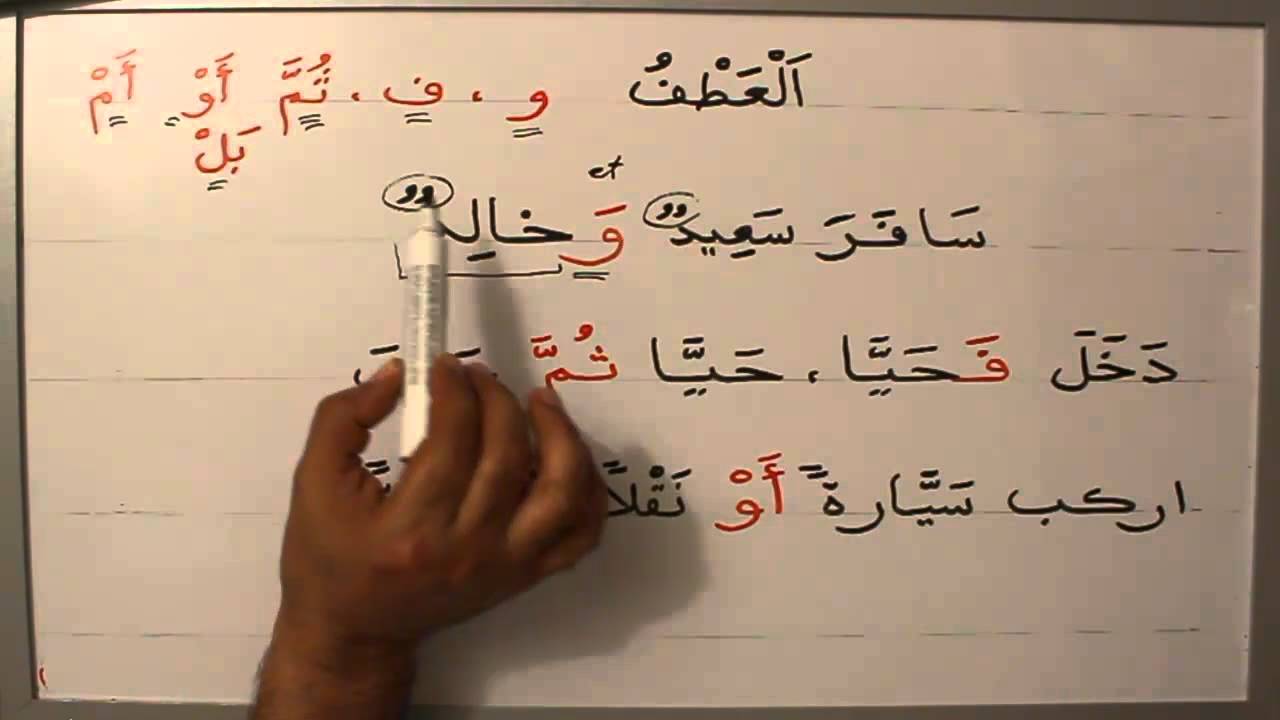 اَلْعَطْفُ و ، ف ، ثُمَّ أَوْ أَمْ
بَلْ
et
سَافَرَ سَعِيدٌ وَ خالِدٌ
دَخَلَ فَحَيَّا ، حَيَّا ثُمَّ
اركب سَيَّارةً أَوْ نَقْلاً